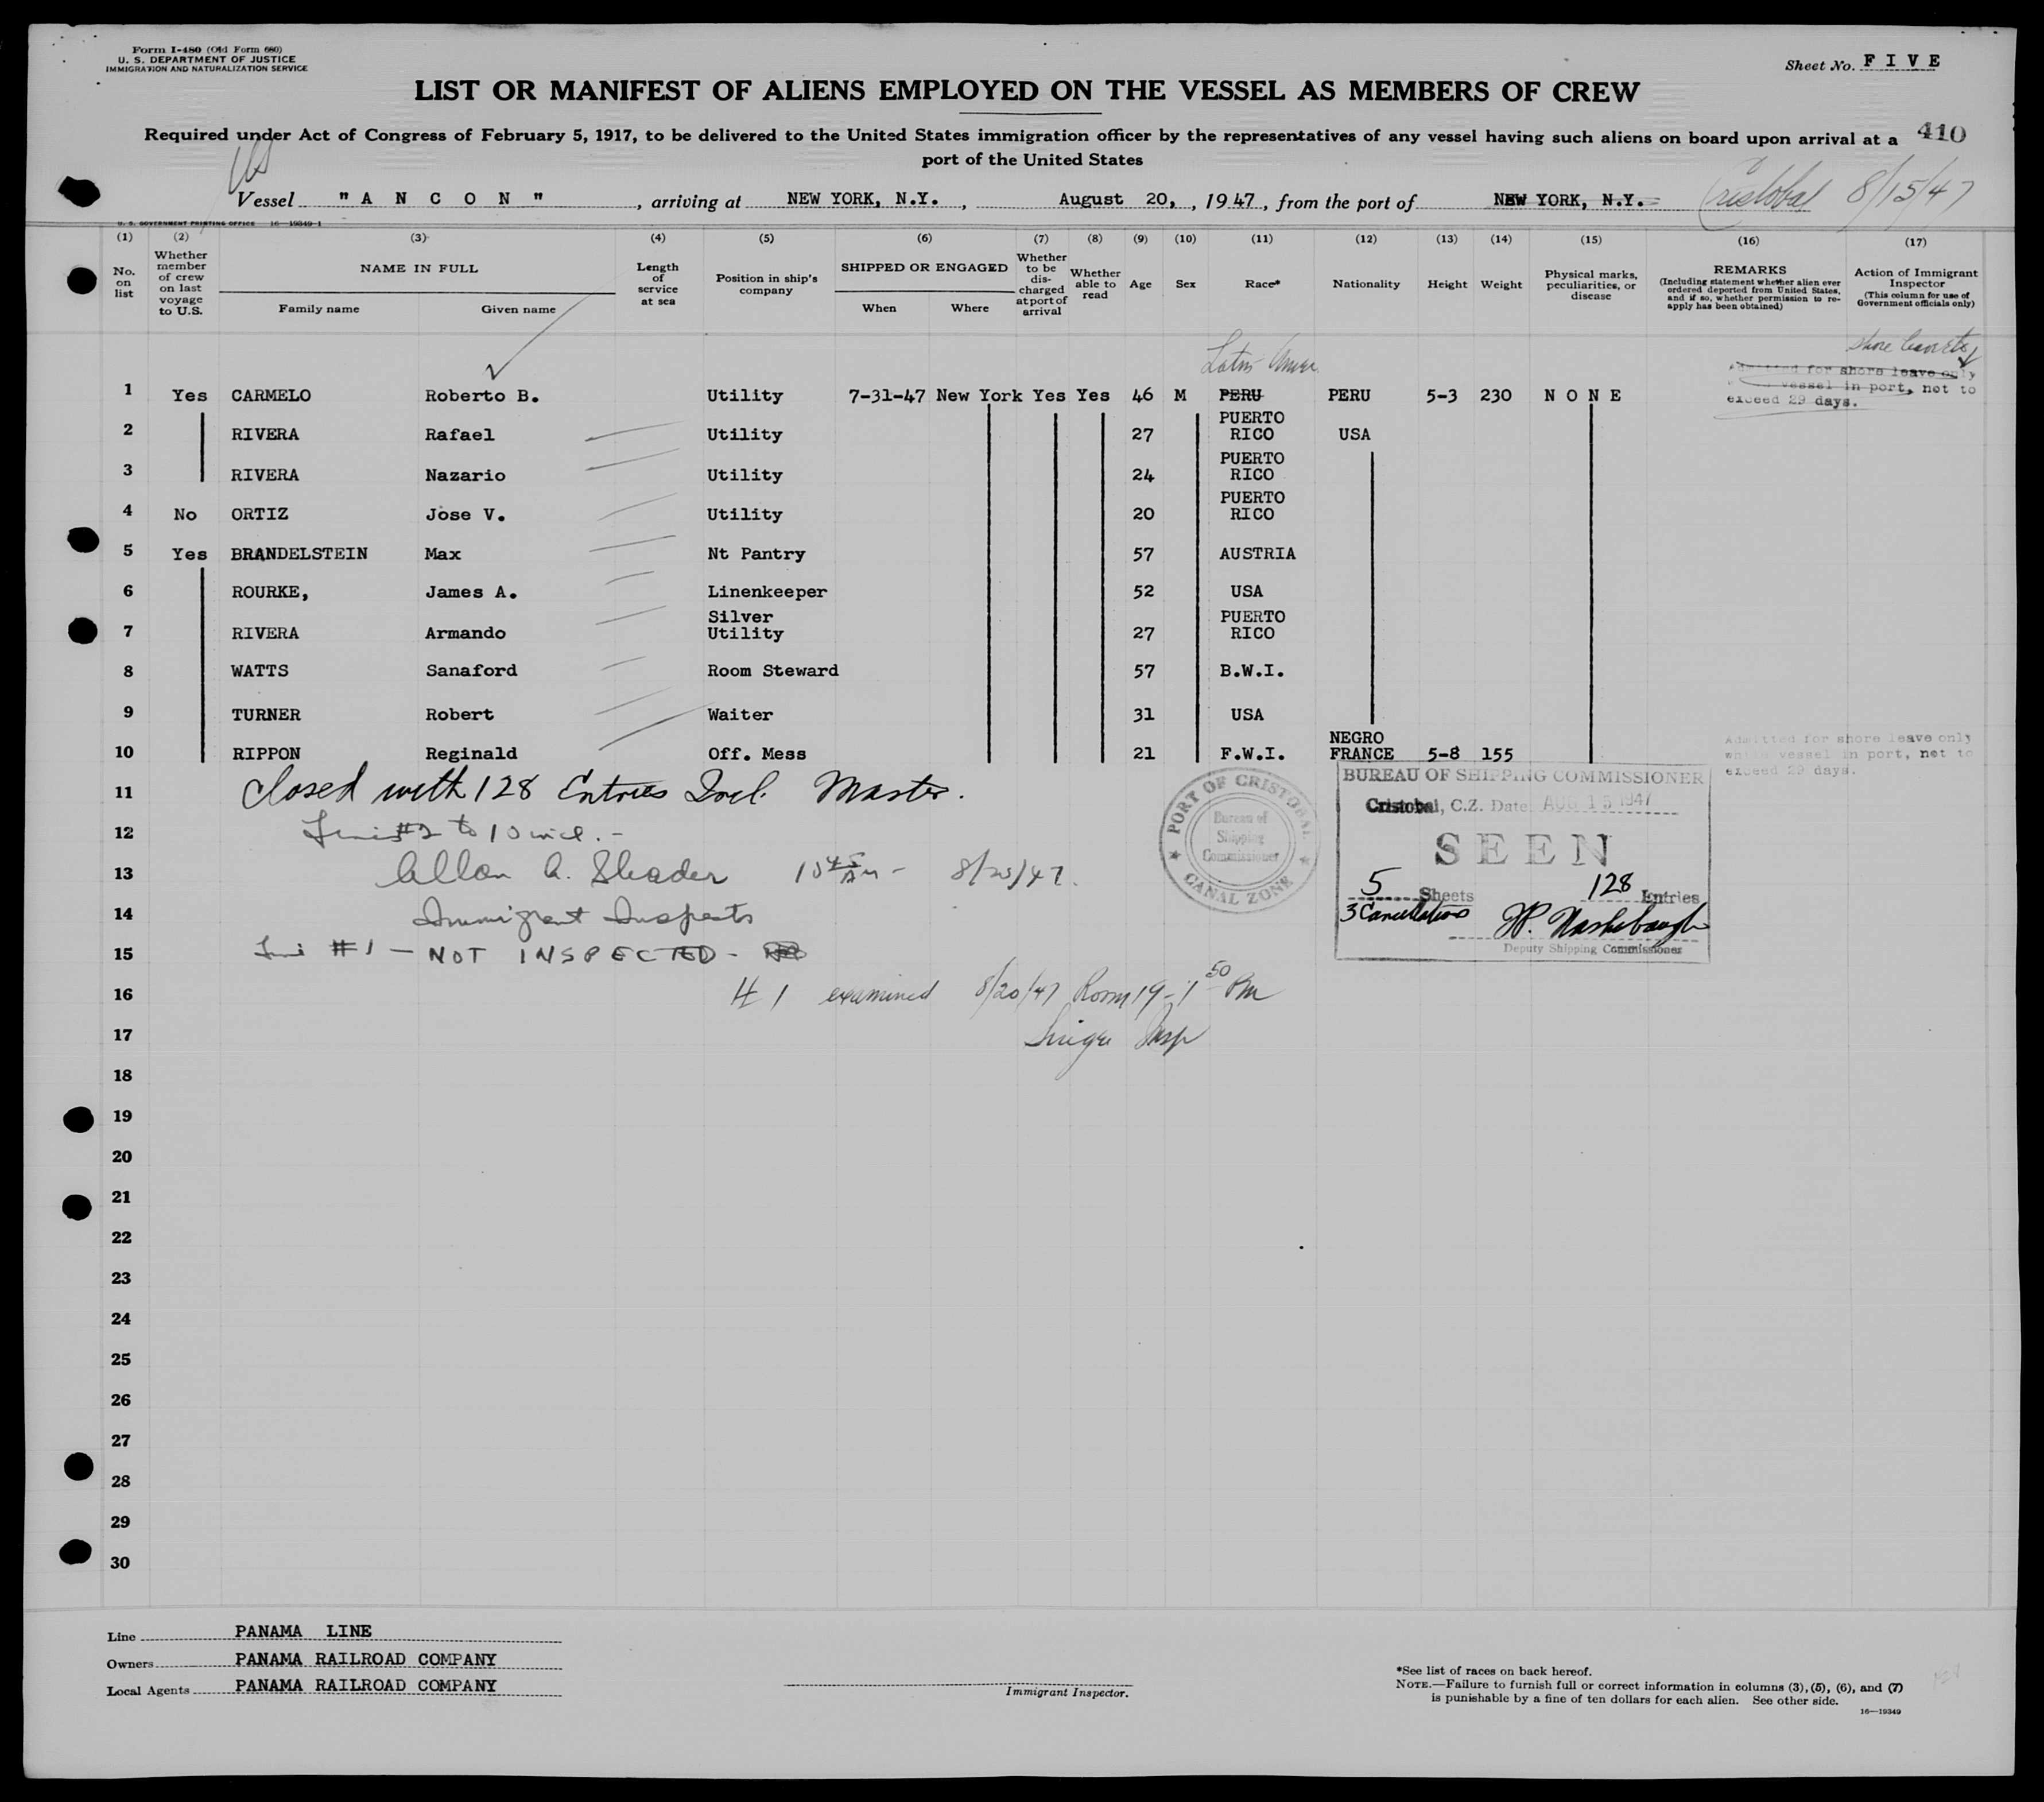 Form I-480 (Old Form 680)
U. S. DEPARTMENT OF JUSTICE
IMMIGRATION AND NATURALIZATION SERVICE
Sheet No. F I V E
LIST OR MANIFEST OF ALIENS EMPLOYED ON THE VESSEL AS MEMBERS OF CREW
Required under Act of Congress of February 5, 1917, to be delivered to the United States immigration officer by the representatives of any vessel having such aliens on board upon arrival at a
port of the United States
410
Vessel " A N C O N " , arriving at NEW YORK, N.Y. , August 20, , 1947 , from the port of NEW YORK, N.Y. Cristobal 8/15/47
U. S. GOVERNMENT PRINTING OFFICE 16-19349-1
(1) (2) (3) (4) (5) (6) (7) (8) (9) (10) (11) (12) (13) (14) (15) (16) (17)
No. on list
Whether member of crew on last voyage to U.S.
NAME IN FULL
Family name Given name
Length of service at sea
Position in ship's company
SHIPPED OR ENGAGED
When Where
Whether to be discharged at port of arrival
Whether able to read
Age
Sex
Race*
Nationality
Height
Weight
Physical marks, peculiarities, or disease
REMARKS
(Including statement whether alien ever ordered deported from United States, and if so, whether permission to reapply has been obtained)
Action of Immigrant Inspector
(This column for use of Government officials only)
Latin Amer.
shore leave
Admitted for shore leave only
vessel in port, not to
exceed 29 days.
1 Yes CARMELO Roberto B. Utility 7-31-47 New York Yes Yes 46 M PERU PERU 5-3 230 N O N E
2 RIVERA Rafael Utility 27 PUERTO RICO USA
3 RIVERA Nazario Utility 24 PUERTO RICO
4 No ORTIZ Jose V. Utility 20 PUERTO RICO
5 Yes BRANDELSTEIN Max Nt Pantry 57 AUSTRIA
6 ROURKE, James A. Linenkeeper 52 USA
7 RIVERA Armando Silver Utility 27 PUERTO RICO
8 WATTS Sanaford Room Steward 57 B.W.I.
9 TURNER Robert Waiter 31 USA
10 RIPPON Reginald Off. Mess 21 F.W.I. NEGRO FRANCE 5-8 155
Admitted for shore leave only
while vessel in port, not to
exceed 29 days.
11 Closed with 128 Entries Incl. Master.
12 #2 to 10 incl. -
13 Allan A. Shader 10 45 AM - 8/20/47.
14 Immigrant Inspector
15 #1 - NOT INSPECTED -
16 # 1 examined 8/20/47 Room 19 - 1 50 PM
17 Insp
PORT OF CRISTOBAL
Bureau of
Shipping
Commissioner
CANAL ZONE
BUREAU OF SHIPPING COMMISSIONER
Cristobal, C.Z. Date: AUG 15 1947
SEEN
5 Sheets 128 Entries
3 Cancellations
Deputy Shipping Commissioner
18
19
20
21
22
23
24
25
26
27
28
29
30
Line PANAMA LINE
Owners PANAMA RAILROAD COMPANY
Local Agents PANAMA RAILROAD COMPANY
Immigrant Inspector.
*See list of races on back hereof.
NOTE.—Failure to furnish full or correct information in columns (3), (5), (6), and (7)
is punishable by a fine of ten dollars for each alien. See other side.
16—19349